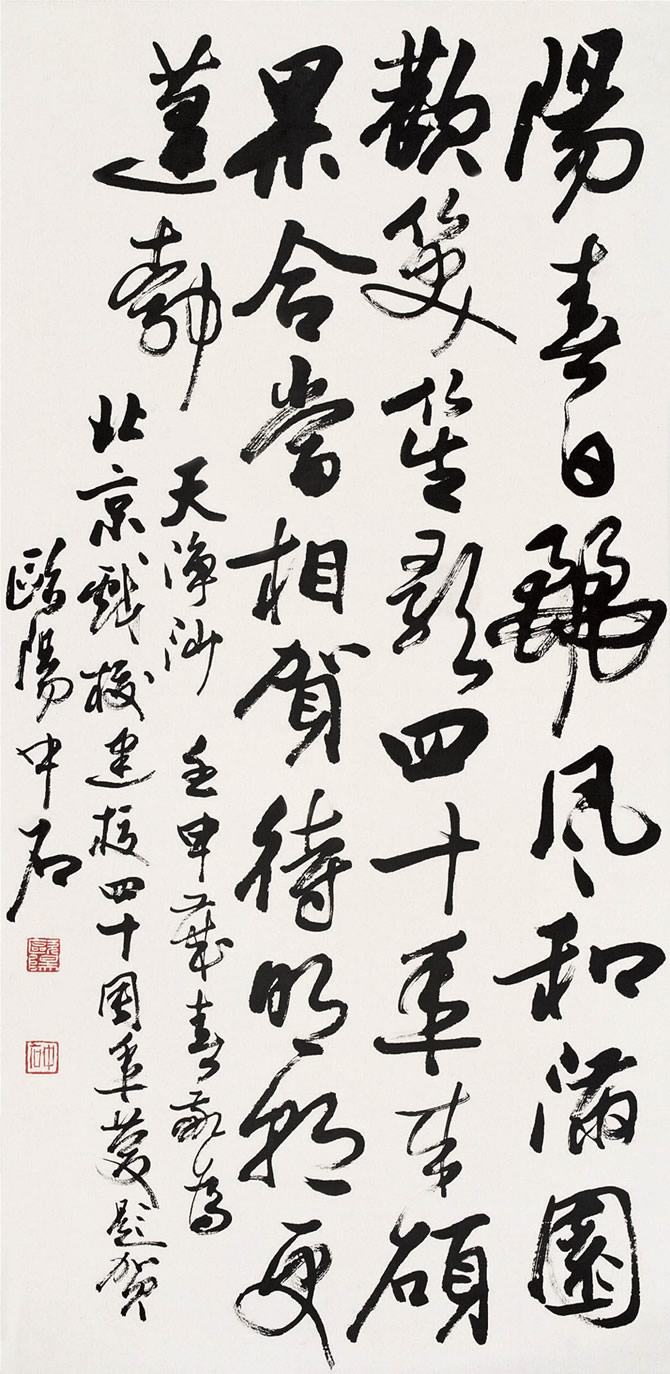 陽春日麗風和滿園
歡笑笙歌四十年來碩
果合當相賀待明朝更
蓬勃
天淨沙 壬申歲春敬為
北京戲校建校四十周年慶題賀
歐陽中石